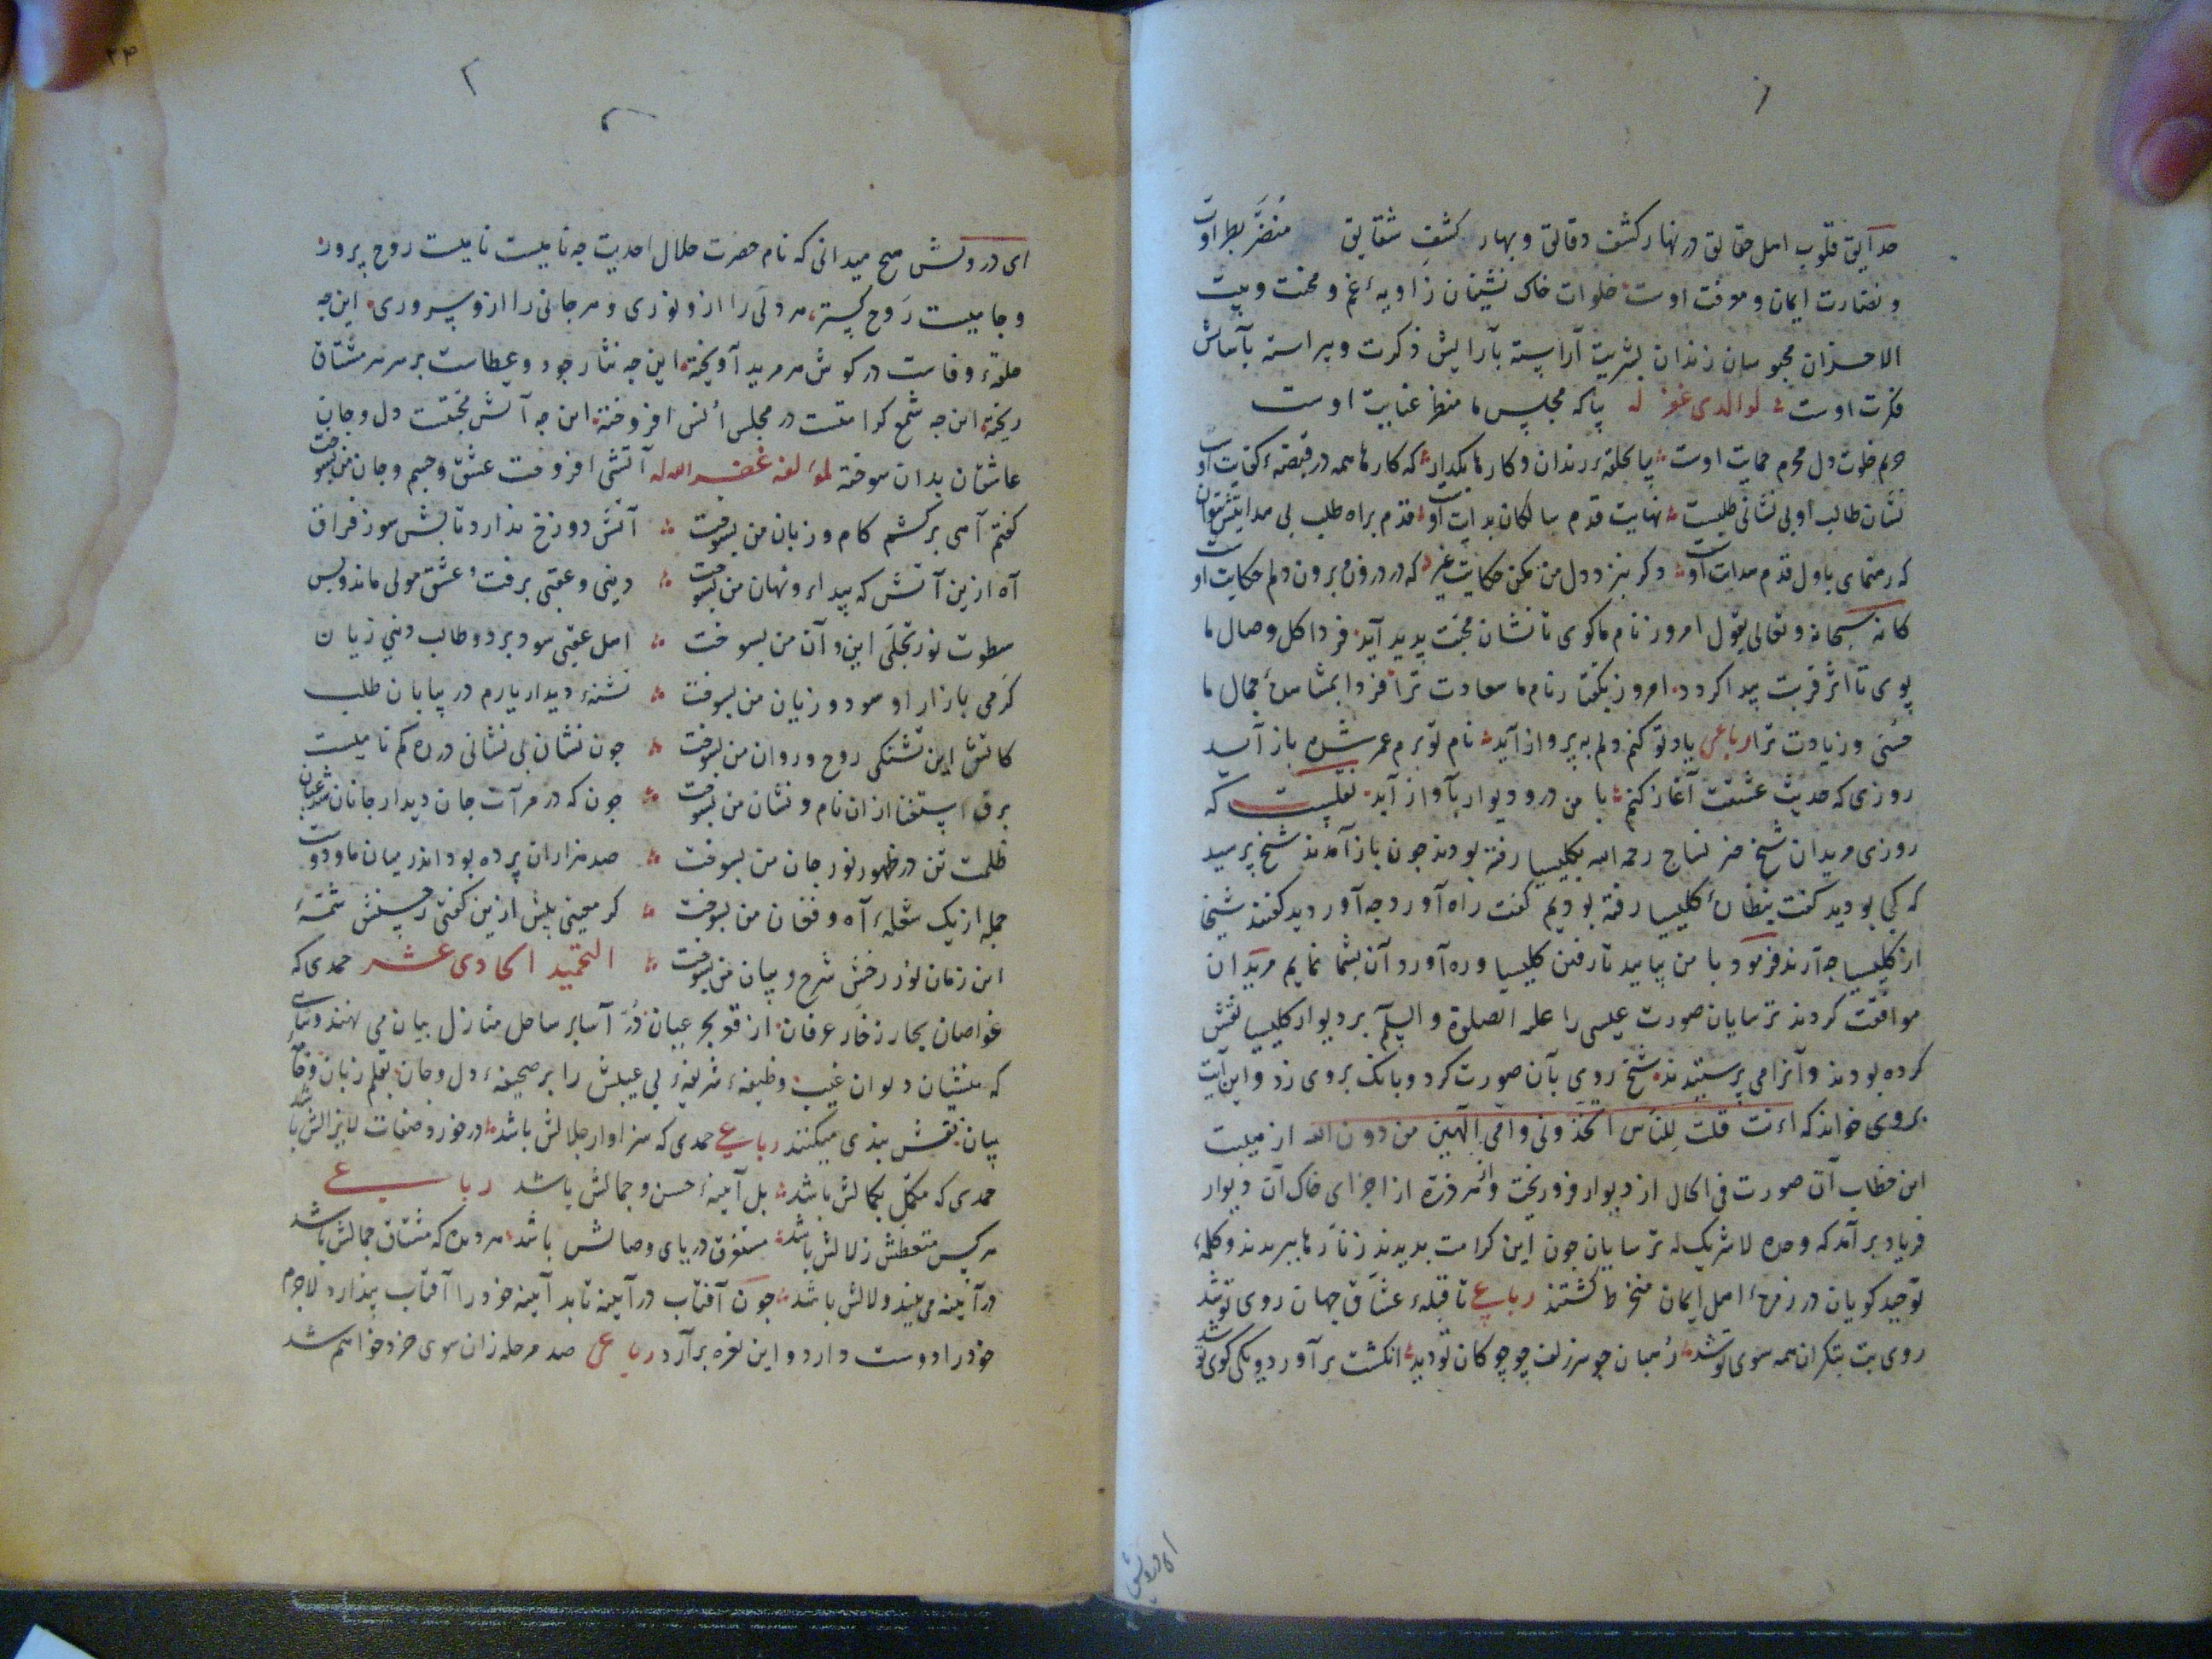 حدایق قلوب اهل حقایق در نهار کشف دقایق و بهار کشف شقایق منضر بطراوت
و نضارت ایمان و معرفت اوست خلوات خاک نشینان زاویهٔ غم و محنت و بیت
الاحزان محبوسان زندان بشریت آراسته بآرایش ذکرت و پیراسته بآسایش
فکرت اوست لوالدی غفر له بیا که مجلس ما منظر عنایت اوست
حریم خلوت دل محرم حمایت اوست بیا بحلقهٔ رندان و کارها بگذار که کارها همه در قبضهٔ کفایت اوست
نشان طالب او بی نشانی طلبست نهایت قدم سالکان بدایت اوست قدم براه طلب بی هدایتش نتوان
که رهنمای باول قدم هدایت اوست دگر بنزد دل من مکن حکایت غیر که در درون و برون دلم حکایت اوست
کانه سبحانه و تعالی یقول امروز نام ما گوی تا نشان محبت پدید آید فردا گل وصال ما
بوی تا اثر قربت پیدا گردد امروز بگفتار نام ما سعادت ترا فردا بمشاهدهٔ جمال ما
حسنی و زیادت ترا رباعی یاد تو کنم دلم به پرواز آید نام تو برم عمر شده باز آید
روزی که حدیث عشقت آغاز کنم با من در و دیوار بآواز آید نقلست که
روزی مریدان شیخ خیر نساج رحمه الله بکلیسیا رفته بودند چون باز آمدند شیخ پرسید
که کجا بودید گفتند بنظارهٔ کلیسیا رفته بودیم گفت راه آورد چه آوردید گفتند شیخا
از کلیسیا چه آرند فرمود با من بیایید تا رفتن کلیسیا و ره آورد آن بشما نمایم مریدان
موافقت کردند ترسایان صورت عیسی را علیه الصلوة و السلم بر دیوار کلیسیا نقش
کرده بودند و آنرا می پرستیدند شیخ روی بآن صورت کرد و بانک بروی زد و این آیت
بروی خواند که اءنت قلت للناس اتخذونی و امی الهین من دون الله از هیبت
این خطاب آن صورت فی الحال از دیوار فرو ریخت و از هر ذرهٔ از اجزای خاک آن دیوار
فریاد برآمد که وحده لا شریک له ترسایان چون این کرامت بدیدند زنارها ببریدند و کلمهٔ
توحید گویان در زمرهٔ اهل ایمان منخرط گشتند رباعی تا قبلهٔ عشاق جهان روی تو شد
روی بت بتگران همه سوی تو شد رهبان چو سر زلف چو چوگان تو دید انگشت برآورد و یکی گوی تو شد
ای درویش
۲۴
ای درویش هیچ میدانی که نام حضرت جلال احدیت چه نامیست نامیست روح پرور
و جامیست روح گستر هر دلی را ازو نوری و هر جانی را ازو سروری این چه
حلقهٔ وفاست در گوش هر مرید آویخته این چه نثار جود و عطاست بر سر هر مشتاق
ریخته این چه شمع کرامتست در مجلس انس افروخته این چه آتش محبتست دل و جان
عاشقان بدان سوخته لمؤلفه غفر الله له آتشی افروخت عشق و جسم و جان من بسوخت
گفتم آهی برکشم کام و زبان من بسوخت آتش دوزخ ندارد تابش سوز فراق
آه ازین آتش که پیدا و نهان من بسوخت دینی و عقبی برفت و عشق مولی ماند و بس
سطوت نور تجلی این و آن من بسوخت اهل عقبی سود برد و طالب دینی زیان
گرمی بازار او سود و زیان من بسوخت تشنهٔ دیدار یارم در بیابان طلب
کاتش این تشنگی روح و روان من بسوخت چون نشان بی نشانی در ره گم نامیست
برق استغنا ازان نام و نشان من بسوخت چون که در مرآت جان دیدار جانان شد عیان
ظلمت تن در ظهور نور جان من بسوخت صد هزاران پرده بود اندر میان ما و دوست
جمله از یک شعلهٔ آه و فغان من بسوخت گر معینی پیش ازین گفتی ز حسنش شمهٔ
این زمان نور رخش شرح و بیان من بسوخت التحمید الحادی عشر حمدی که
غواصان بحار زخار عرفان از قعر بحر عیان در آسا بر ساحل منازل بیان می نهند
که منشیان دیوان غیب وظیفهٔ شریفهٔ بی عیبش را بر صحیفهٔ دل و جان بقلم زبان و
بیان نقش بندی میکنند رباعی حمدی که سزاوار جلالش باشد در خور و صفات لایزالش باشد
حمدی که مکمل بکمالش باشد بل آینهٔ حسن و جمالش باشد رباعی
هر کس متعطش زلالش باشد مستغرق دریای وصالش باشد هر دیده که مشتاق جمالش باشد
در آینه می بیند و لالش باشد چون آفتاب در آینه تابد آینه خود را آفتاب پندارد لاجرم
خود را دوست دارد و این نعره برآرد رباعی صد مرحله زان سوی خرد خواهم شد